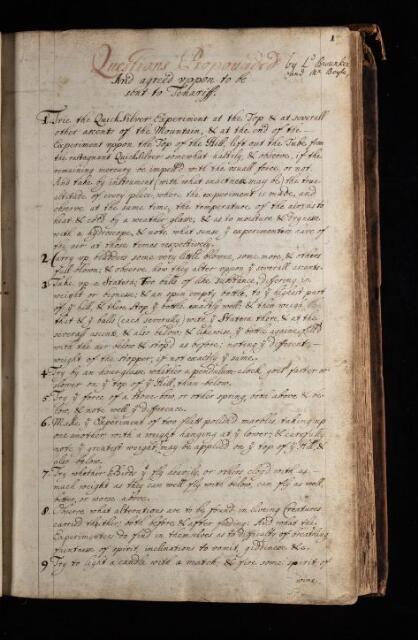 1
Questions Propounded by Ld. Brouncker
And agreed uppon to be and Mr. Boyle,
sent to Tenariff.
1 Trie the QuickSilver Experiment at the Top & at severall
other ascents of the Mountain, & at the end of the
Experiment uppon the Top of the Hill, lift out the Tube from
the restagnant QuickSilver somewhat hastily, & observe, if the
remaining mercury be impell'd with the usuall force, or not.
And take by instrument (with what exactness may be) the true
altitude of every place, where the experiment is made, and
observe at the same time, the temperature of the air, as to
heat & cold by a weather glasse, & as to moisture & dryness
with a hydroscope, & note what sense ye experimenters have of
the air at those times respectively.
2 Carry up bladders some very little blowne, some more, & others
full blown; & observe, how they alter uppon ye severall ascents.
3 Take up a Statera; two balls of like substance, differing in
weight or bigness; & an open empty bottle, to ye highest part
of ye hill, & then stop ye bottle exactly well; & then weigh
that & ye balls (each severally) with ye Statera there, & at the
severall ascents, & also below: & likewise, ye bottle against
with the air below & stop'd as before; noting ye different
weight of the stopper, if not exactly ye same.
4 Try by an hour-glasse, whether a pendulum-clock goes faster or
slower on ye top of ye Hill, than below.
5 Try ye force of a stone-bow, or other spring, both above & be-
low, & note well ye difference.
6. Make, ye Experiment of two flatt polish'd marbles, taking up
one another with a weight hanging at ye lower; & carefully
note ye greatest weight may be applied on ye top of ye Hill &
also below.
7. Try whether Birds yt fly heavily, or others clog'd with as
much weight as they can well fly with below, can fly as well,
better, or worse above.
8. Observe what alterations are to be found in living Creatures
carried thither, both before & after feeding: And what the
Experimenters do find in themselves as to difficulty of breathing
faintness of spirit, inclinations to vomit, giddiness &c.
9 Try to light a candle with a match, & fire some spirit of
wine,